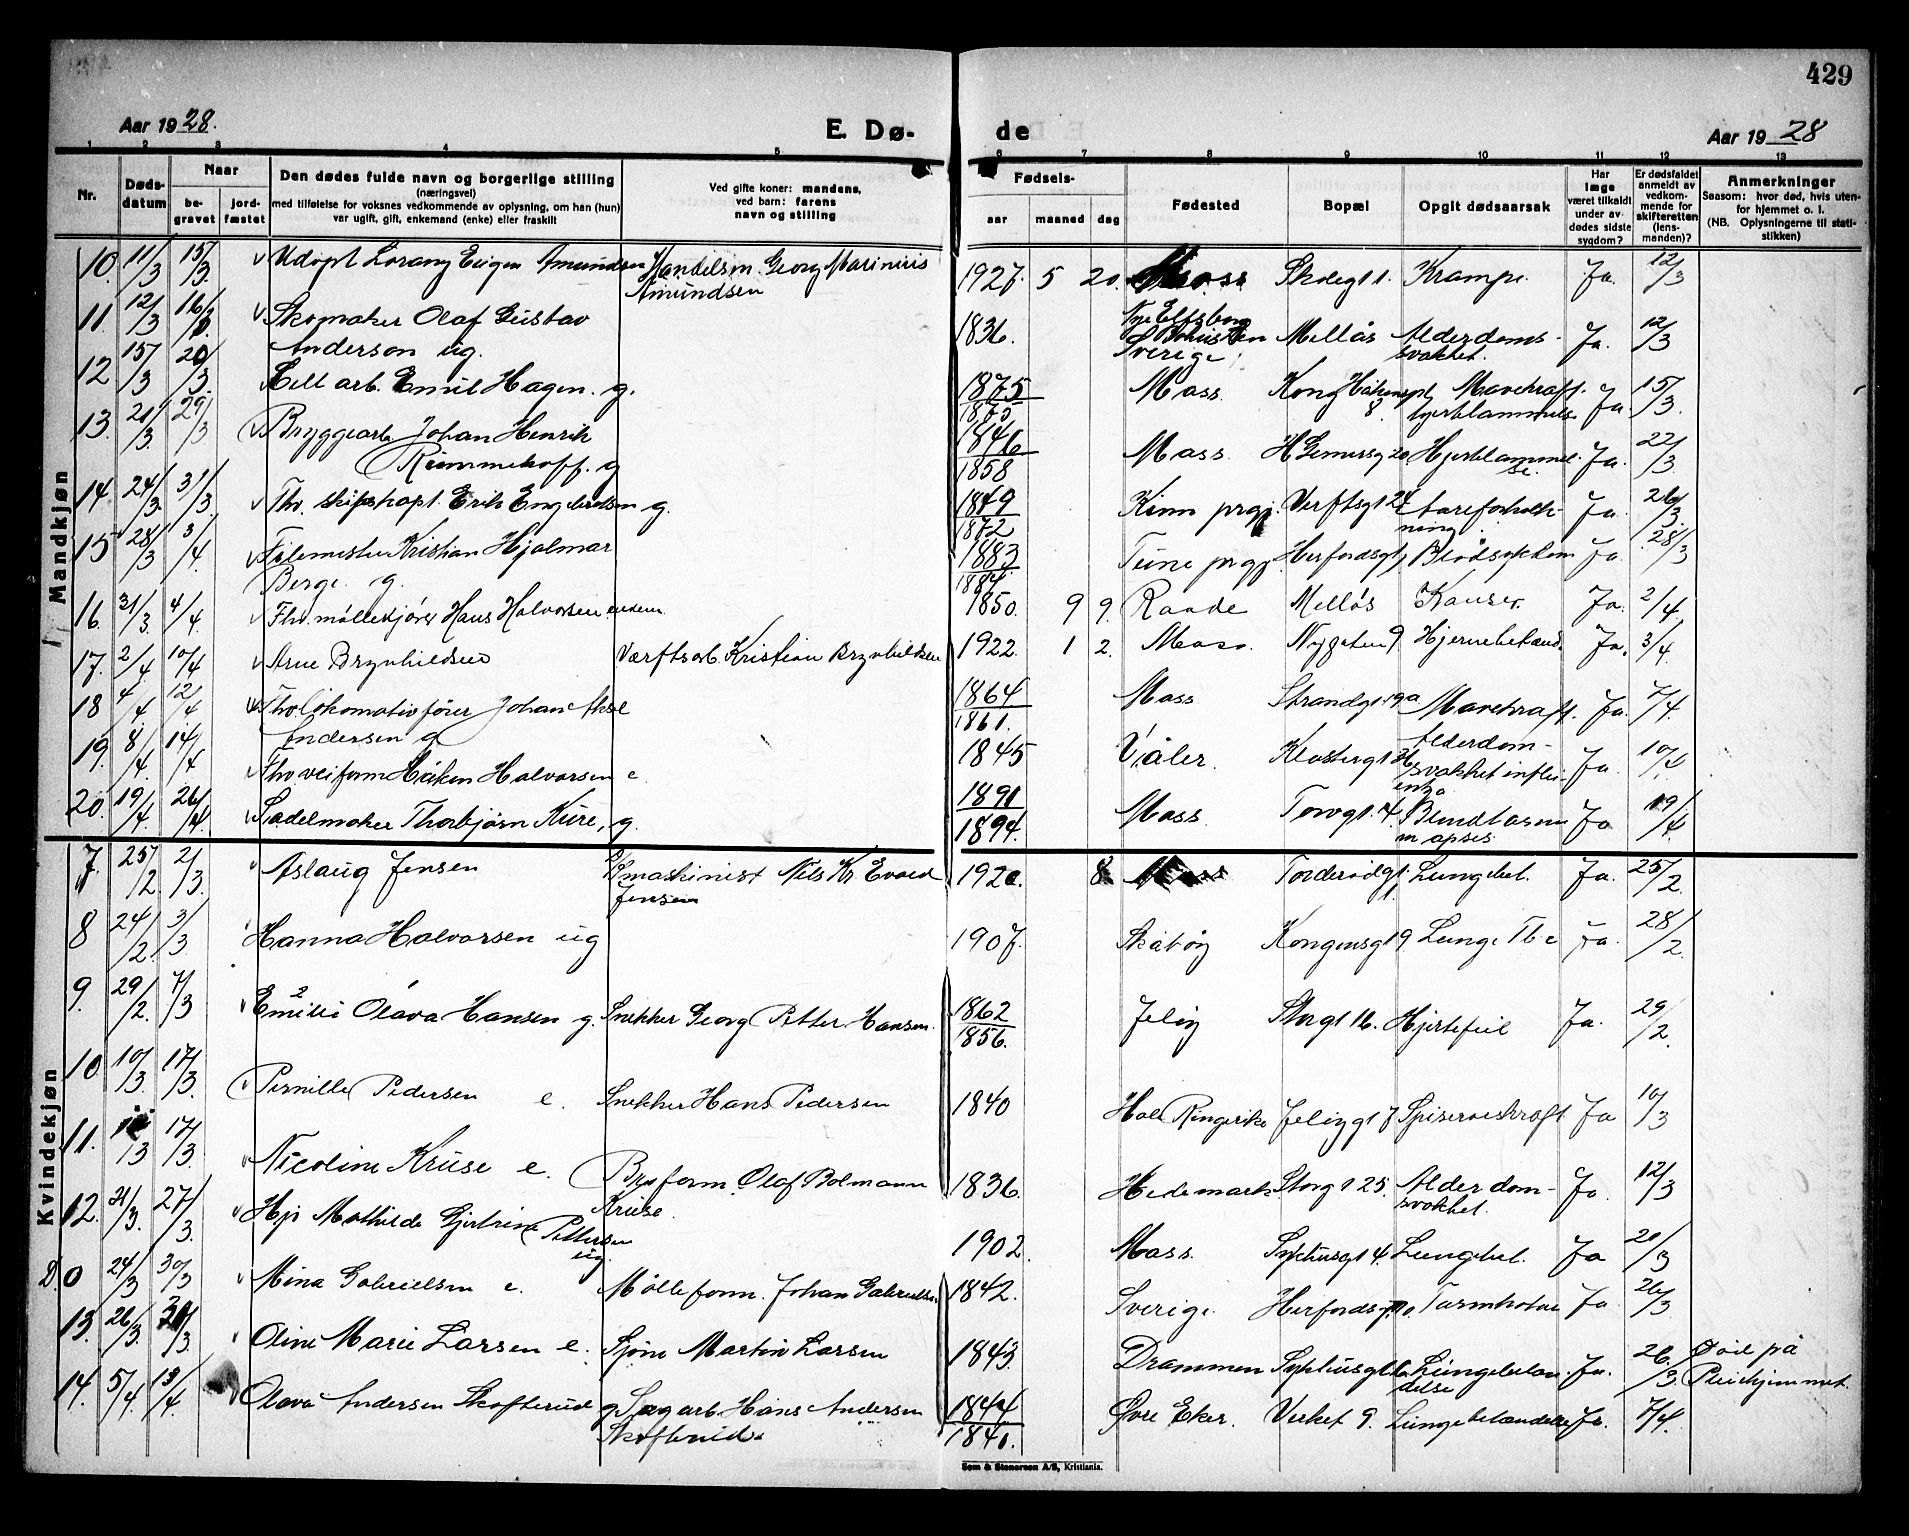 429
Aar 1928.
E. Dø-
de
Aar 1928
1 2 3 4 5 6 7 8 9 10 11 12 13
Nr.
Døds-
datum
Naar
be-
gravet
jord-
fæstet
Den dødes fulde navn og borgerlige stilling
(næringsvei)
med tilføielse for voksnes vedkommende av oplysning, om han (hun)
var ugift, gift, enkemand (enke) eller fraskilt
Ved gifte koner: mandens,
ved barn: farens
navn og stilling
Fødsels-
aar maaned dag
Fødested
Bopæl
Opgit dødsaarsak
Har
læge
været tilkaldt
under av-
dødes sidste
sygdom?
Er dødsfaldet
anmeldt av
vedkom-
mende for
skifteretten
(lens-
manden)?
Anmerkninger
Saasom: hvor død, hvis uten-
for hjemmet o. l.
(NB. Oplysningerne til stati-
stikken)
Mandkjøn
10. 11/3 15/3. Adopt Lorang Eugen Amundsen Handelsm. Georg Marinius
Amundsen
1927. 5 20. Moss Skolegt 1. Krampe. Ja. 12/3
11. 12/3 16/3 Skomaker Olaf Gustav
Anderson ug.
1836. Nye Elfsborg
Sverige. Melløs Alderdoms-
svakhet. Ja. 12/3
12 15/3 20/3. arb. Emil Hagen. g.
1875
1875 Moss. Kong Håkonspl
8 Mavekræft.
hjerblammelse Ja. 15/3.
13. 21/3. 29/3 Bryggearb. Johan Henrik
Rummelhoff. g
1846
1858 Moss. H Gernersg 20 Hjerblammel-
se. Ja. 22/3
14 24/3. 31/3. Fhv. skipskapt. Erik Engebretsen g.
1849
1872 Kinn prgj. Verftsgt 24 Aareforkalk-
ning Ja. 26/3
15 28/3 3/4. Filemester Kristian Hjalmar
Berge. g.
1883
1884. Tune prgj. Herfordsgt Ja. 28/3
16. 31/3. 4/4. Fhv. møllekjører Hans Halvorsen enkem.
1850. 9 9. Raade Melløs Kanser. Ja. 2/4
17. 2/4 10/4 Arne Brynhildsen Værftsarb. Kristian Brynhildsen
1922. 1 2. Moss. Nygaten 9 Hjernebetænd. Ja. 3/4.
18 4/4 12/4 Fhv lokomotivfører Johan Aksel
Andersen g
1864
1861. Moss Strandgt. 19a Mavekræft. Ja. 7/4.
19. 8/4. 14/4 Fhv veiform Håken Halvorsen e
1845 Våler. Klostergt Alderdom-
svakhet influ-
enza Ja 10/4.
20. 19/4. 26/4. Sadelmaker Thorbjørn Kure, g.
1891
1894. Moss. Torvgt. 4. Blindtarm
Ja 19/4
Kvindekjøn
7. 25/2. 2/3. Aslaug Jensen maskinist Nils Kr. Evald
Jensen
192 8. Moss Torderødgt Lungebet. Ja. 25/2.
8 24/2. 3/3 Hanna Halvorsen ug
1907. Skåtøy Kongensgt 9 Lunge Tb.c Ja. 28/2.
9. 29/2. 7/3 Emilie Olava Hansen g. Snekker Georg Petter Hansen.
1862
1856. Jeløy Storgt 16. Hjertefeil Ja. 29/2.
10 10/3. 17/3. Pernille Pedersen e. Snekker Hans Pedersen
1840 Hole Ringerike Jeløygt 7 Spiserørskræft Ja 10/3
11. 11/3 17/3. Nicoline Kruse e. Byform. Olaf Bolmann
Kruse.
1836. Hedemark. Storgt 25. Alderdom-
svakhet. Ja. 12/3
12. 21/3. 27/3. Hjr Mathilde Gjertrine Pettersen
ug.
1902. Moss. Sykehusgt 4. Lungebet. Ja 21/3
D. 0 24/3 30/3 Mina Gabrielsen e. Mølleform. Johan Gabrielsen
1842. Sverige. Herfordsg Ja. 26/3
13. 26/3. 30/3 Oline Marie Larsen e. Sjøm Martin Larsen
1843. Drammen Sykehusgt Lungebetæn
delse Ja. 26/3. Død på
Pleiehjemmet.
14. 5/4. 13/4 Olava Andersen Skofterud g Sagarb. Hans Andersen
Skofterud.
1844
1840. Øvre Eker. Verket 9. Lungebetændelse Ja. 7/4.
Sem & Stenersen A/S, Kristiania.